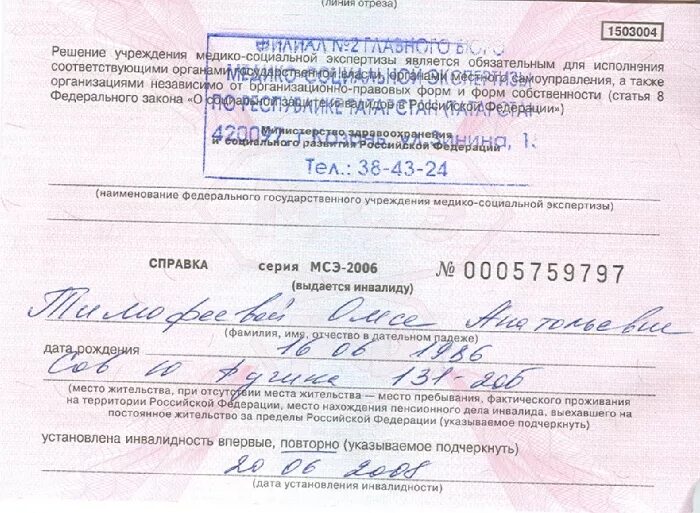 (линия отреза)
1503004
Решение учреждения медико-социальной экспертизы является обязательным для исполнения
соответствующими органами государственной власти, органами местного самоуправления, а также
организациями независимо от организационно-правовых форм и форм собственности (статья 8
Федерального закона «О социальной защите инвалидов в Российской Федерации»)
ФИЛИАЛ №2 ГЛАВНОГО БЮРО
МЕДИКО-СОЦИАЛЬНОЙ ЭКСПЕРТИЗЫ
ПО РЕСПУБЛИКЕ ТАТАРСТАН (ТАТАРСТАН
г. Казань,
Министерство здравоохранения
и социального развития Российской Федерации
Тел.: 38-43-24
(наименование федерального государственного учреждения медико-социальной экспертизы)
СПРАВКА серия МСЭ-2006 № 0005759797
(выдается инвалиду)
Тимофеевой Анатольевне
(фамилия, имя, отчество в дательном падеже)
дата рождения 16 06 1986
Сов 131-206
(место жительства, при отсутствии места жительства — место пребывания, фактического проживания
на территории Российской Федерации, место нахождения пенсионного дела инвалида, выехавшего на
постоянное жительство за пределы Российской Федерации (указываемое подчеркнуть)
установлена инвалидность впервые, повторно (указываемое подчеркнуть)
20 06 2008
(дата установления инвалидности)